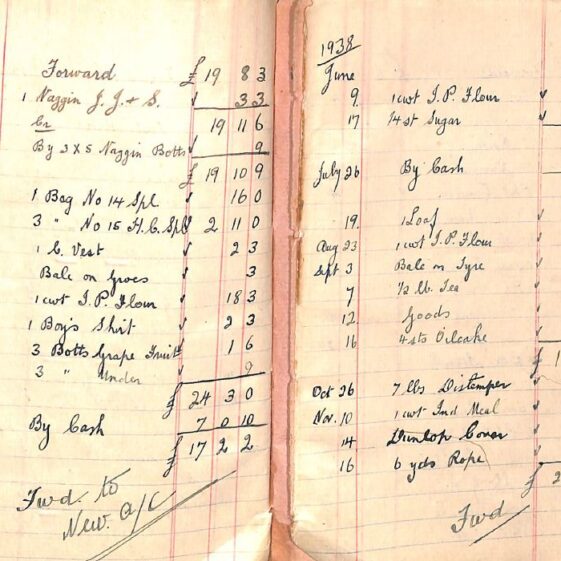 Forward £ 19 8 3
1 Naggin J. J. & S. 3 3
Cr 19 11 6
By 3 X 5 Naggin Botts 9
£ 19 10 9
1 Bag No 14 Spl 16 0
3 " No 15 H. C. Spl 2 11 0
1 C. Vest 2 3
Bale on Grocs 3
1 cwt I. P. Flour 18 3
1 Boy's Shirt 2 3
3 Botts Grape Fruit 1 6
3 " Under 9
£ 24 3 0
By Cash 7 0 10
£ 17 2 2
Fwd. to
New. A/C
1938
June
9. 1 cwt I. P. Flour
17 1/4 st Sugar
July 26 By Cash
19. 1 Loaf
Aug 23 1 cwt I. P. Flour
Sept 3 Bale on Tyre
7 1/2 lb. Tea
12 Goods
16 4 sts Oilcake
£ 1
Oct 26 7 lbs Distemper
Nov. 10 1 cwt Ind Meal
14 Dunlop Cover
16 6 yds Rope
£ 2
Fwd